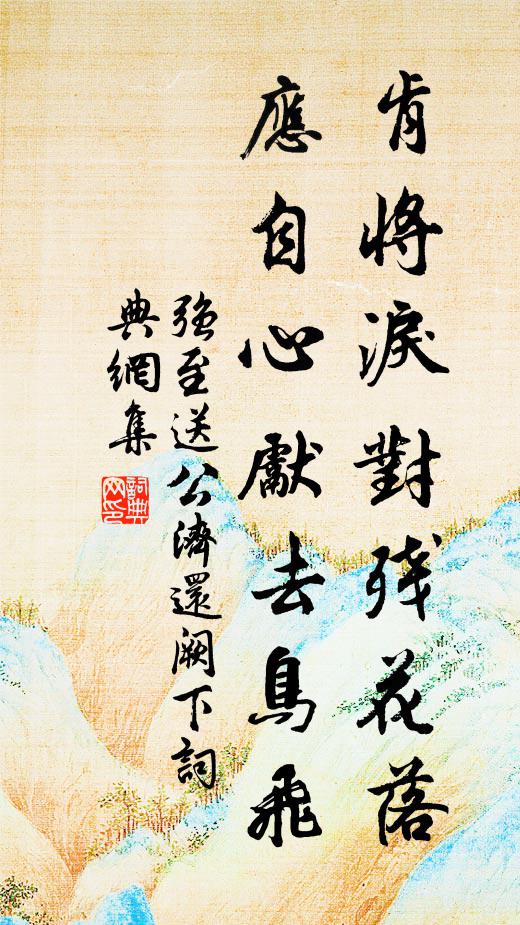 肯將淚對殘花落
應自心獻去鳥飛
強至送公濟還闕下詞
典網集
詞典網印